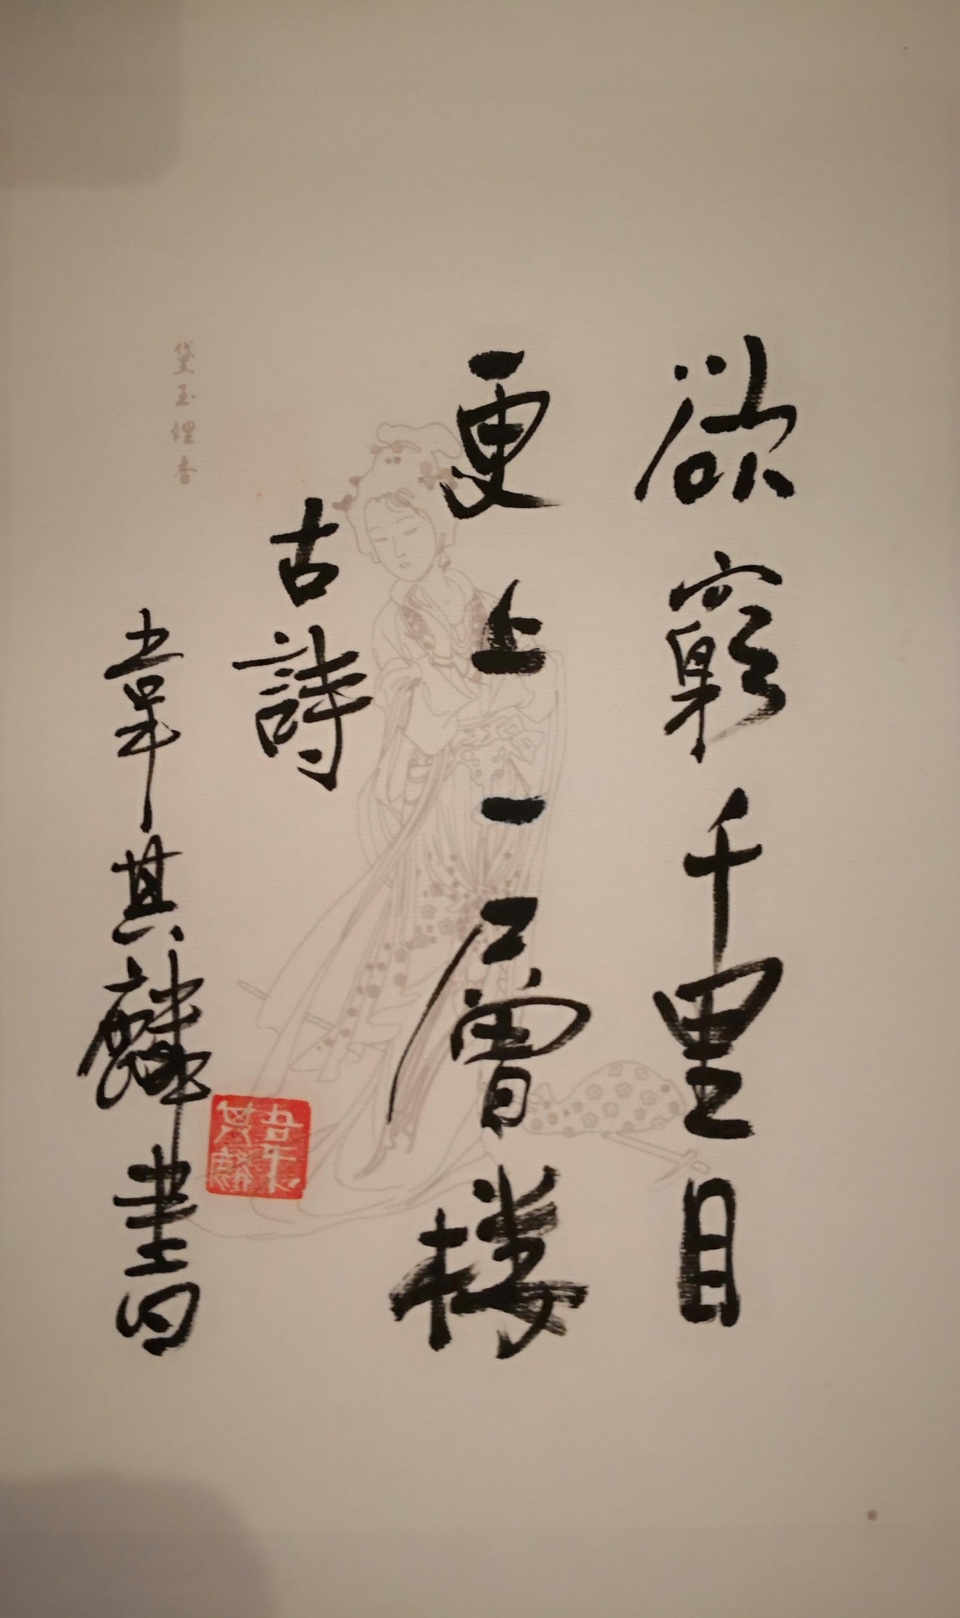 欲窮千里目
更上一層楼
古詩
韋其麟書
黛玉埋香
韋其麟